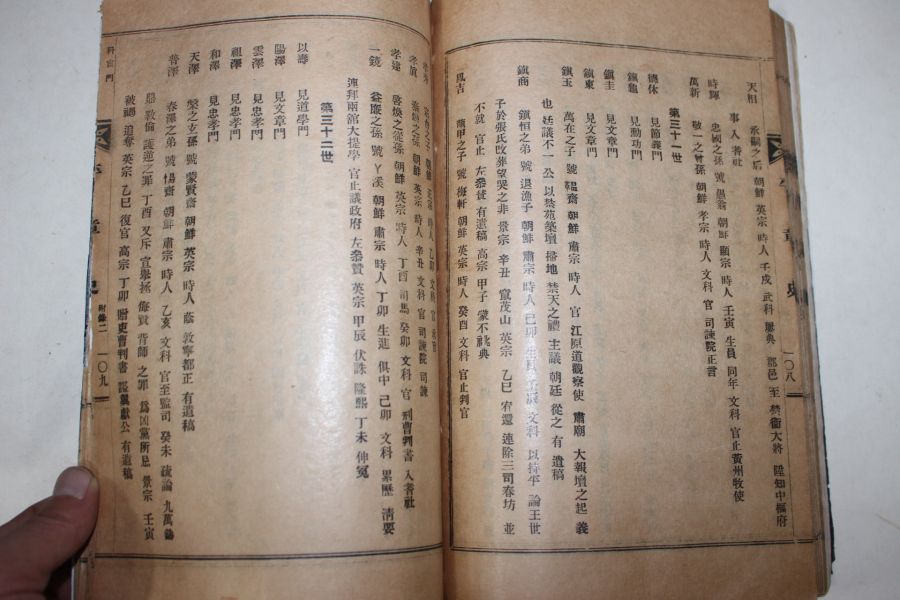 天相 承嗣之后 朝鮮 英宗 時人 壬戌 武科 郡邑 至 禁衛大將 陞知中樞府
事 入耆社
時輝 忠國之孫 號 愚翁 朝鮮 顯宗 時人 壬寅 生員 同年 文科 官止黃州牧使
萬新 敬一之曾孫 朝鮮 孝宗 時人 文科 官 司諫院正言
第三十一世
德休 見節義門
鎭龜 見勳功門
鎭圭 見文章門
鎭東 見文章門
鎭玉 萬在之子 號 韞齋 朝鮮 肅宗 時人 官 江原道觀察使 肅廟 大報壇之起 義
也 廷議不一 公 以禁苑築壇 掃地 禁天之禮 主議 朝廷 從之 有 遺稿
鎭商 鎭恒之弟 號 退漁子 朝鮮 肅宗 時人 己卯 生員 壬辰 文科 以持平 論王世
子於張氏改葬望哭之非 景宗 辛丑 竄茂山 英宗 乙巳 宥還 連除三司春坊 並
不就 官止 左參贊 有遺稿 高宗 甲子 蒙不祧典
鳳吉 之子 號 梅軒 朝鮮 英宗 時人 癸酉 文科 官止判官
一〇八
科官門
之子 朝鮮 英宗 時人 乙卯 文科 官
孝 之孫 朝鮮 英宗 時人 辛丑 文科 官 司諫院 司諫
孝達 啓煥之從孫 朝鮮 英宗 時人 丁酉 司馬 癸卯 文科 官 刑曹判書 入耆社
一鏡 益廉之孫 號 丫溪 朝鮮 肅宗 時人 丁卯 生進 俱中 己卯 文科 累歷 淸要
連拜兩館大提學 官止議政府 左參贊 英宗 甲辰 伏誅 隆熙 丁未 伸寃
第三十二世
以壽 見道學門
陽澤 見文章門
雲澤 見忠孝門
祖澤 見忠孝門
和澤 見忠孝門
天澤 槃之玄孫 號 蒙賢齋 朝鮮 英宗 時人 蔭 敦寧都正 有遺稿
普澤 春澤之弟 號 惕齋 朝鮮 肅宗 時人 乙亥 文科 官至監司 癸未 疏論 九萬
敎倫 護逆之罪 丁酉 又斥 宣擧拯 侮賢 背師 之罪 爲凶黨所忌 景宗 壬寅
被禍 追奪 英宗 乙巳 復官 高宗 丁卯 贈吏曹判書 諡獻公 有遺稿
附錄二 一〇九